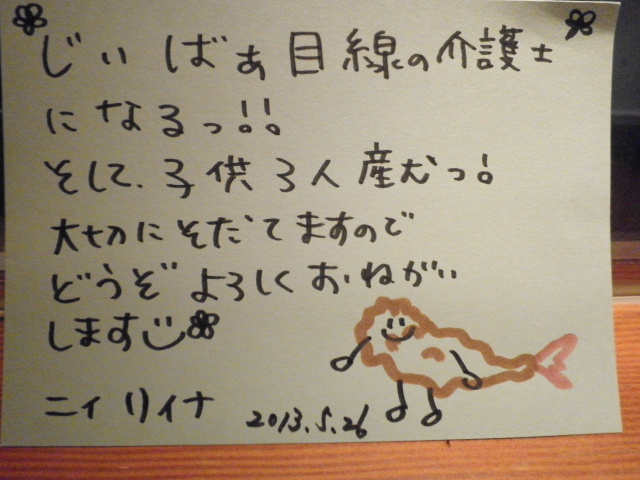 じぃばぁ目線の介護士
になるっ!!
そして、子供3人産むっ!
大切にそだてますので
どうぞよろしくおねがい
します
ニイリイナ 2013.5.26